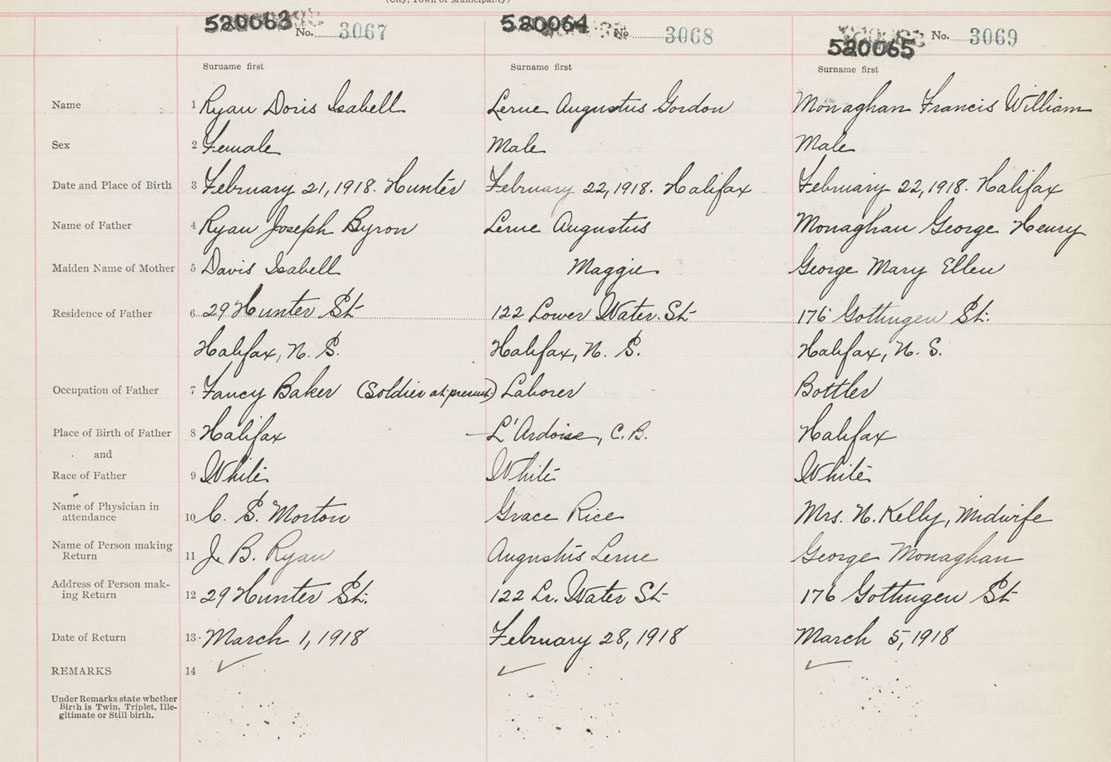 (City, Town or Municipality)
520063 No. 3067 520064 No 3068 520065 No. 3069
Surname first Surname first Surname first
Name 1 Ryan Doris Isabell Lerue Augustus Gordon Monaghan Francis William
Sex 2 Female Male Male
Date and Place of Birth 3 February 21, 1918. Hunter February 22, 1918. Halifax February 22, 1918. Halifax
Name of Father 4 Ryan Joseph Byron Lerue Augustus Monaghan George Henry
Maiden Name of Mother 5 Davis Isabell Maggie George Mary Ellen
Residence of Father 6 29 Hunter St 122 Lower Water. St 176 Gottingen St.
Halifax, N. S. Halifax, N. S. Halifax, N. S.
Occupation of Father 7 Fancy Baker (Soldier at present) Laborer Bottler
Place of Birth of Father 8 Halifax L'Ardoise, C.B. Halifax
and
Race of Father 9 White White White
Name of Physician in
attendance 10 C. S. Morton Grace Rice Mrs. N. Kelly, Midwife
Name of Person making
Return 11 J. B. Ryan Augustus Lerue George Monaghan
Address of Person mak-
ing Return 12 29 Hunter St. 122 Lr. Water St 176 Gottingen St
Date of Return 13 March 1, 1918 February 28, 1918 March 5, 1918
REMARKS 14
Under Remarks state whether
Birth is Twin, Triplet, Ille-
gitimate or Still-birth.